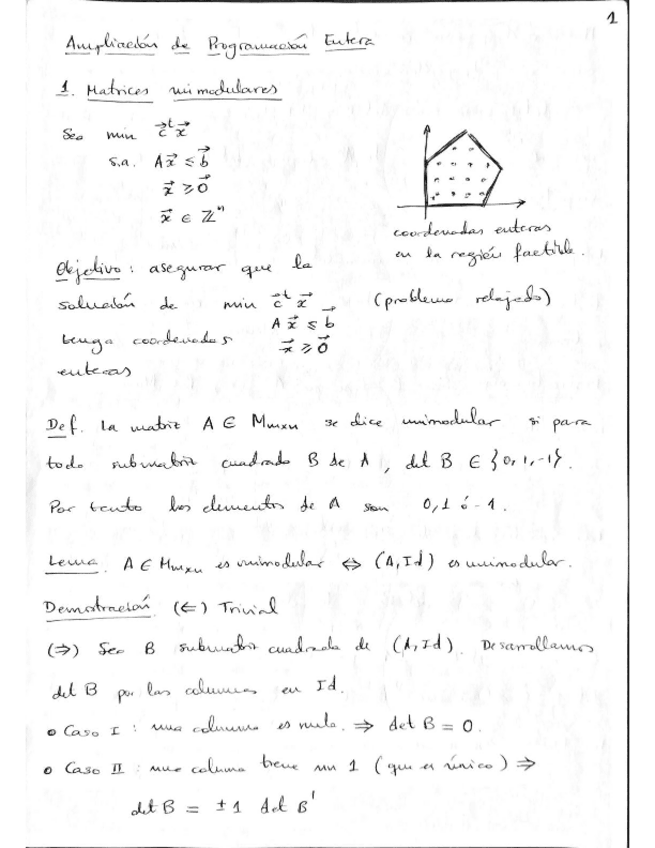 1
Ampliación de Programación Entera
1. Matrices unimodulares
Sea min c⃗ᵗx⃗
s.a. Ax⃗ ≤ b⃗
x⃗ ≥ 0⃗
x⃗ ∈ ℤⁿ
coordenadas enteras
en la región factible.
Objetivo: asegurar que la
solución de min c⃗ᵗx⃗ (problema relajado)
Ax⃗ ≤ b⃗
tenga coordenadas x⃗ ≥ 0⃗
enteras
Def. La matriz A ∈ Mmxn se dice unimodular si para
toda submatriz cuadrada B de A, det B ∈ {0, 1, -1}.
Por tanto los elementos de A son 0, 1 ó -1.
Lema. A ∈ Mmxn es unimodular ⇔ (A, Id) es unimodular.
Demostración. (⇐) Trivial
(⇒) Sea B submatriz cuadrada de (A, Id). Desarrollamos
det B por las columnas en Id.
• Caso I : una columna es nula. ⇒ det B = 0.
• Caso II : una columna tiene un 1 (que es único) ⇒
det B = ±1 det B'